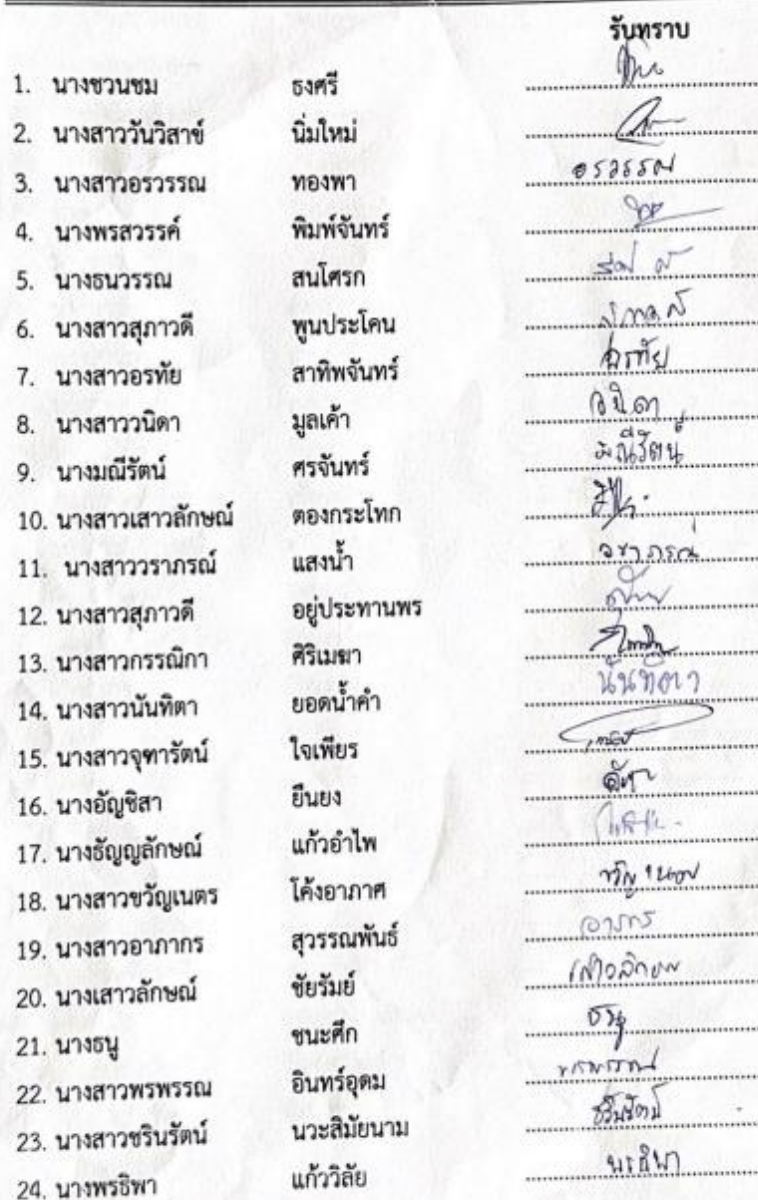 รับทราบ
1. นางชวนชม ธงศรี
2. นางสาววันวิสาข์ นิ่มใหม่
3. นางสาวอรวรรณ ทองพา อรวรรณ
4. นางพรสวรรค์ พิมพ์จันทร์
5. นางธนวรรณ สนโศรก
6. นางสาวสุภาวดี พูนประโคน
7. นางสาวอรทัย สาทิพจันทร์ อรทัย
8. นางสาววนิดา มูลเค้า วนิดา
9. นางมณีรัตน์ ศรจันทร์ มณีรัตน์
10. นางสาวเสาวลักษณ์ ตองกระโทก
11. นางสาววราภรณ์ แสงน้ำ วราภรณ์
12. นางสาวสุภาวดี อยู่ประทานพร
13. นางสาวกรรณิกา ศิริเมฆา
14. นางสาวนันทิตา ยอดน้ำคำ นันทิตา
15. นางสาวจุฑารัตน์ ใจเพียร
16. นางอัญชิสา ยืนยง
17. นางธัญญลักษณ์ แก้วอำไพ
18. นางสาวขวัญเนตร โค้งอาภาศ ขวัญเนตร
19. นางสาวอาภากร สุวรรณพันธ์ อาภากร
20. นางเสาวลักษณ์ ชัยรัมย์ เสาวลักษณ์
21. นางธนู ชนะศึก ธนู
22. นางสาวพรพรรณ อินทร์อุดม พรพรรณ
23. นางสาวชรินรัตน์ นวะสิมัยนาม ชรินรัตน์
24. นางพรธิพา แก้ววิลัย พรธิพา